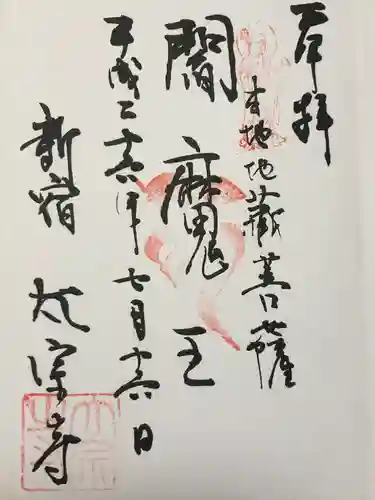 奉拝
本地地蔵菩薩
閻魔王
平成二十六年七月十六日
新宿 太宗寺